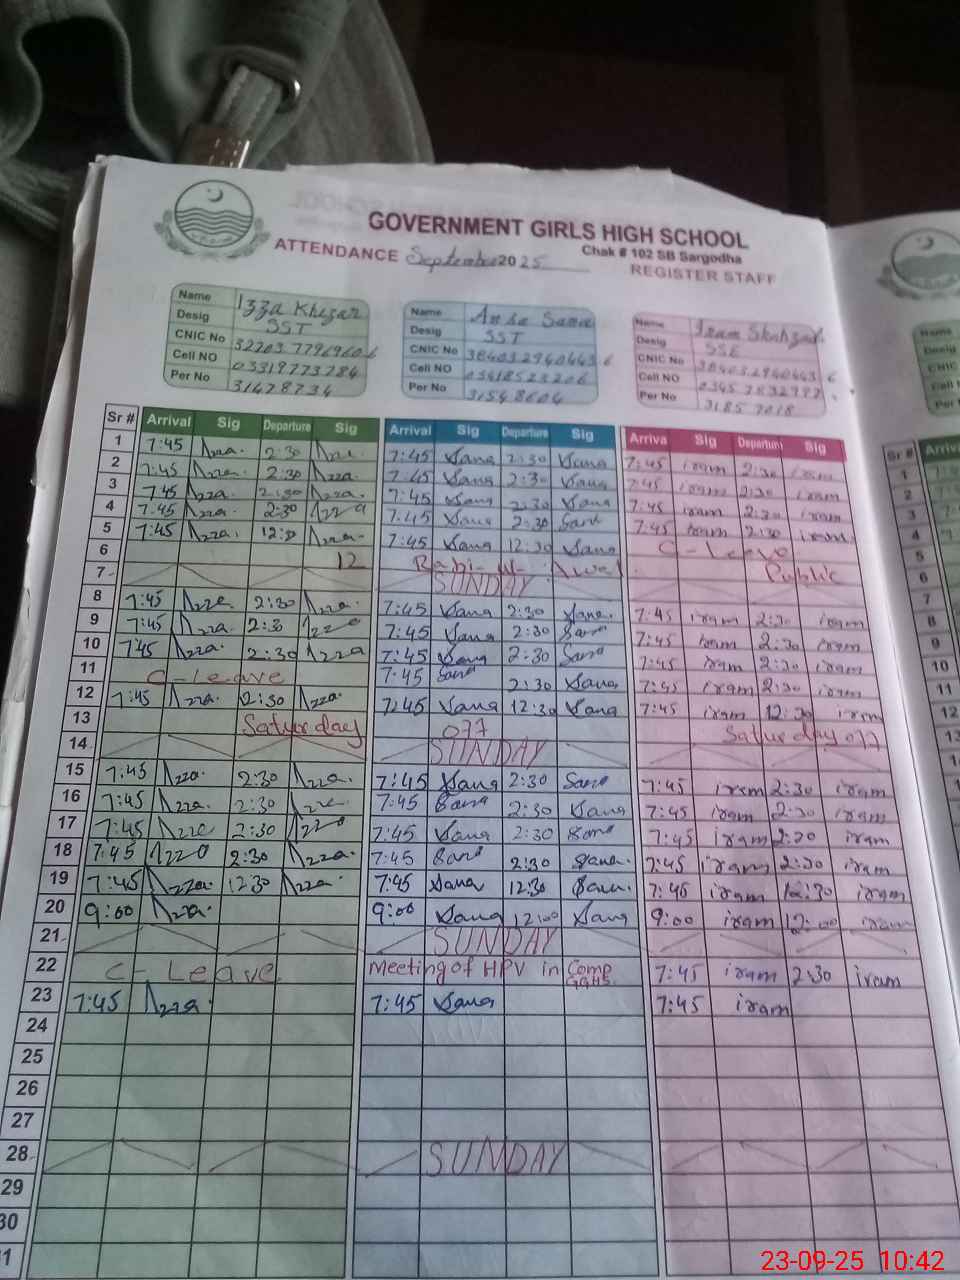 GOVERNMENT GIRLS HIGH SCHOOL
Chak # 102 SB Sargodha
ATTENDANCE September 2025 REGISTER STAFF
Name Izza Khizar
Desig SST
CNIC No
Cell NO
Per No 31478734
Name Sana
Desig SST
CNIC No
Cell NO
Per No 31548604
Name Iram Shahzadi
Desig SSE
CNIC No
Cell NO
Per No 31857018
Sr # Arrival Sig Departure Sig Arrival Sig Departure Sig Arriva Sig Departure Sig
1 7:45 Azza. 2:30 7:45 Sana 2:30 Sana 7:45 iram 2:30 iram
2 7:45 Azza. 2:30 Azza. 7:45 Sana 2:30 Sana 7:45 iram 2:30 iram
3 7:45 Azza. 2:30 Azza. 7:45 Sana 2:30 Sana 7:45 iram 2:30 iram
4 7:45 Azza. 2:30 Azza 7:45 Sana 2:30 Sana 7:45 iram 2:30 iram
5 7:45 Azza. 12:30 Azza. 7:45 Sana 12:30 Sana C-Leave
6 12 Rabi-ul-Awal Public
7 SUNDAY
8 7:45 Azza 2:30 Azza. 7:45 Sana 2:30 Sana. 7:45 iram 2:30 iram
9 7:45 Azza. 2:30 Azza 7:45 Sana 2:30 Sana 7:45 iram 2:30 iram
10 7:45 Azza. 2:30 Azza 7:45 Sana 2:30 Sana 7:45 iram 2:30 iram
11 C-Leave 7:45 Sana 2:30 Sana 7:45 iram 2:30 iram
12 7:45 Azza. 12:30 Azza. 7:45 Sana 12:30 Sana 7:45 iram 12:30 iram
13 Saturday off Saturday off
14 SUNDAY
15 7:45 Azza. 2:30 Azza. 7:45 Sana 2:30 Sana 7:45 iram 2:30 iram
16 7:45 Azza. 2:30 Azza 7:45 Sana 2:30 Sana 7:45 iram 2:30 iram
17 7:45 Azza 2:30 Azza 7:45 Sana 2:30 Sana 7:45 iram 2:30 iram
18 7:45 Azza 2:30 Azza. 7:45 Sana 2:30 Sana. 7:45 iram 2:30 iram
19 7:45 Azza. 12:30 Azza. 7:45 Sana 12:30 Sana. 7:45 iram 12:30 iram
20 9:00 Azza. 9:00 Sana 12:00 Sana 9:00 iram 12:00 iram
21 SUNDAY
22 C-Leave Meeting of HPV in Comp GGHS. 7:45 iram 2:30 iram
23 7:45 Azza. 7:45 Sana 7:45 iram
24
25
26
27
28 SUNDAY
29
30
31
Name
Desig
CNIC
Cell
Per No
Sr # Arriva
1
2
3
4
5
6
7
8
9
10
11
12
13
14
23-09-25 10:42